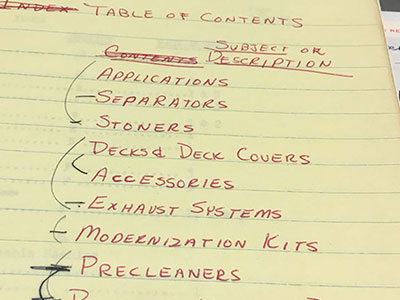 INDEX TABLE OF CONTENTS
CONTENTS SUBJECT OR DESCRIPTION
APPLICATIONS
SEPARATORS
STONERS
DECKS & DECK COVERS
ACCESSORIES
EXHAUST SYSTEMS
MODERNIZATION KITS
PRECLEANERS